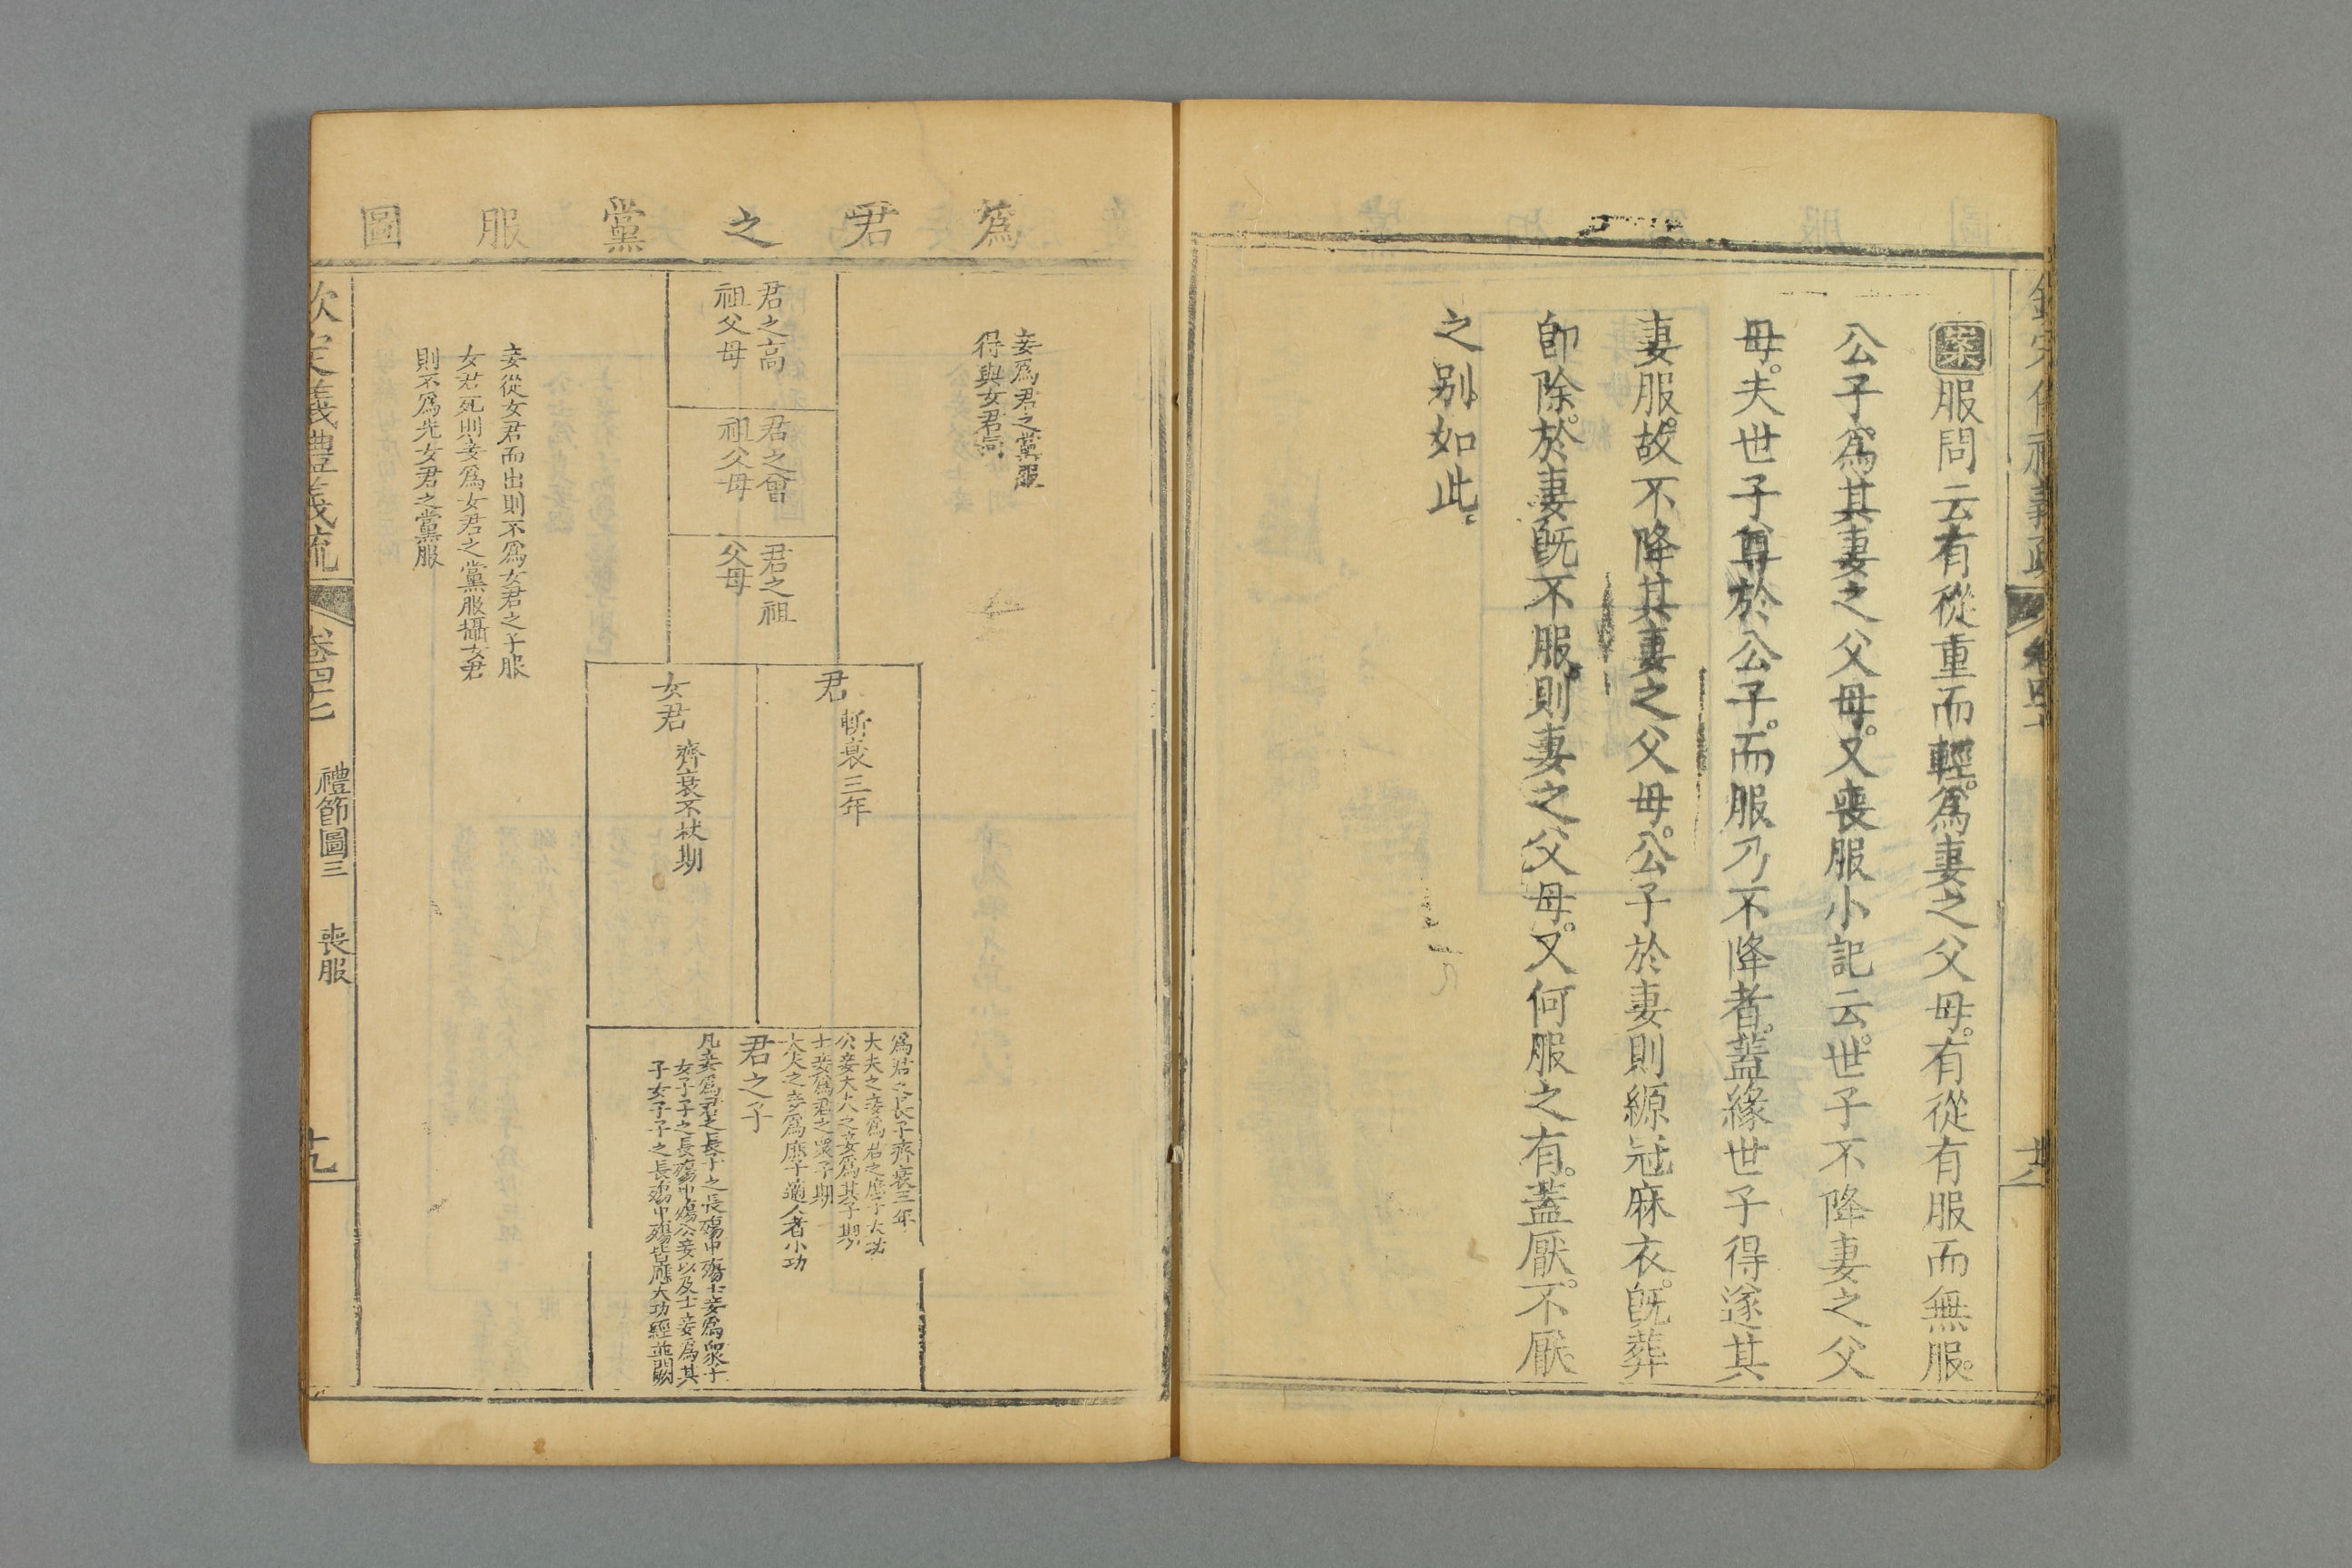 案服問云有從重而輕。爲妻之父母。有從有服而無服。
公子爲其妻之父母。又喪服小記云。世子不降妻之父
母。夫世子尊於公子。而服乃不降者。蓋緣世子得遂其
妻服。故不降其妻之父母。公子於妻則縓冠麻衣。旣葬
卽除。於妻旣不服。則妻之父母。又何服之有。蓋厭。不厭。
之別如此。
爲君之黨服圖
妾爲君之黨服
得與女君同
君之高
祖父母
君之曾
祖父母
君之祖
父母
君
斬衰三年
女君
齊衰不杖期
爲君之長子齊衰三年
大夫之妾爲君之庶子大功
公妾大夫之妾爲其子期
士妾爲君之衆子期
大夫之妾爲庶子適人者小功
君之子
凡妾爲君之長子之長殤中殤士妾爲衆子
女子子之長殤中殤公妾以及士妾爲其
子女子子之長殤中殤皆應大功經並闕
妾從女君而出則不爲女君之子服
女君死則妾爲女君之黨服攝女君
則不爲先女君之黨服
欽定儀禮義疏
卷四十七
禮節圖三
喪服